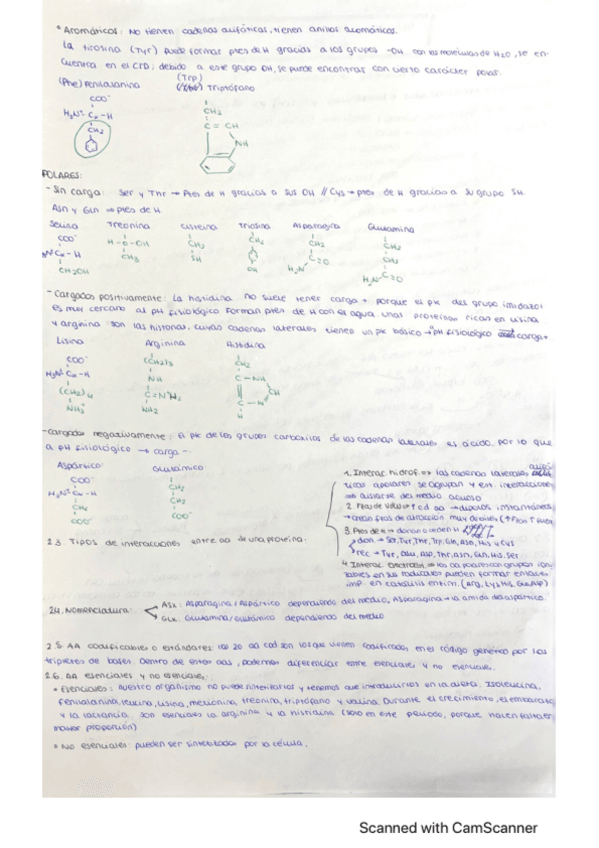 • Aromáticos: No tienen cadenas alifáticas, tienen anillos aromáticos.
La tirosina (Tyr) puede formar ptes de H gracias a los grupos -OH con las moléculas de H₂O, se en-
cuentra en el CPD; debido a este grupo OH, se puede encontrar con cierto carácter polar.
(Phe) Fenilalanina (Trp) Triptófano
COO⁻
H₃N⁺ Cα - H
CH₂
CH₂
C = CH
NH
POLARES:
- Sin carga: Ser y Thr → Ptes de H gracias a sus OH // Cys → ptes de H gracias a su grupo SH.
Asn y Gln → ptes de H.
Serina Treonina Cisteína Tirosina Asparagina Glutamina
COO⁻
C - H
CH₂OH
H - C - OH
CH₃
CH₂
SH
CH₂
OH
CH₂
C=O
H₂N
CH₂
CH₂
C=O
H₂N
- Cargados positivamente: La histidina no suele tener carga + porque el pK del grupo imidazol
es muy cercano al pH fisiológico forman ptes de H con el agua. Unas proteínas ricas en lisina
y arginina son las histonas, cuyas cadenas laterales tienen un pK básico → a pH fisiológico carga +
Lisina Arginina Histidina
COO⁻
H₃N⁺ Cα - H
(CH₂)₄
NH₃⁺
(CH₂)₃
NH
NH₂
CH₂
C - NH
CH
- Cargados negativamente: el pK de los grupos carboxilos de las cadenas laterales es ácido, por lo que
a pH fisiológico → carga -
Aspártico Glutámico
COO⁻
H₃N⁺ Cα - H
CH₂
COO⁻
CH₂
CH₂
COO⁻
2.3. Tipos de interacciones entre aa de una proteína:
1. Interac. hidrof. → las cadenas laterales
apolares se agrupan y est. interacciones
→ aislarse del medio acuoso
→ dipolos instantáneos
→ crean fzas de atracción muy débiles
3. Ptes de H → donan o ceden H
don → Ser, Tyr, Thr, Trp, Gln, Asn, His y Cys
rec → Tyr, Glu, Asp, Thr, Asn, Gln, His, Ser
4. Interac. electrost. → los aa polares con grupos ion-
izables en sus radicales pueden formar enlaces
imp. en catálisis enzim. (Arg, Lys, His, Glu, Asp)
2.4. Nomenclatura:
Asx: Asparagina/Aspártico dependiendo del medio. Asparagina → la amida del aspártico.
Glx: Glutamina/Glutámico dependiendo del medio
2.5. AA codificables o estándares: los 20 aa cod son los que vienen codificados en el código genético por los
tripletes de bases. Dentro de estos aas, podemos diferenciar entre esenciales y no esenciales.
2.6. AA esenciales y no esenciales:
• Esenciales: nuestro organismo no puede sintetizarlos y tenemos que introducirlos en la dieta. Isoleucina,
fenilalanina, leucina, lisina, metionina, treonina, triptófano y valina. Durante el crecimiento, el embarazo
y la lactancia son esenciales la arginina y la histidina (solo en este periodo, porque hacen falta en
mayor proporción)
• No esenciales: pueden ser sintetizados por la célula.
Scanned with CamScanner